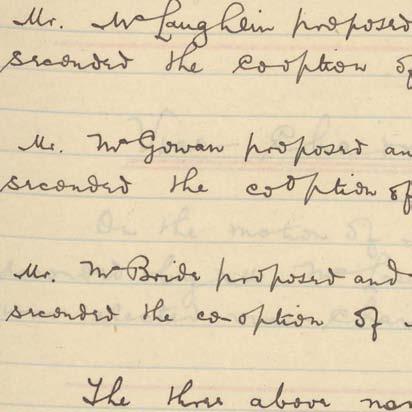 Mr. McLaughlin proposed
seconded the cooption of
Mr. McGowan proposed an
seconded the cooption of
Mr. McBride proposed and
seconded the co-option of
The three above nam